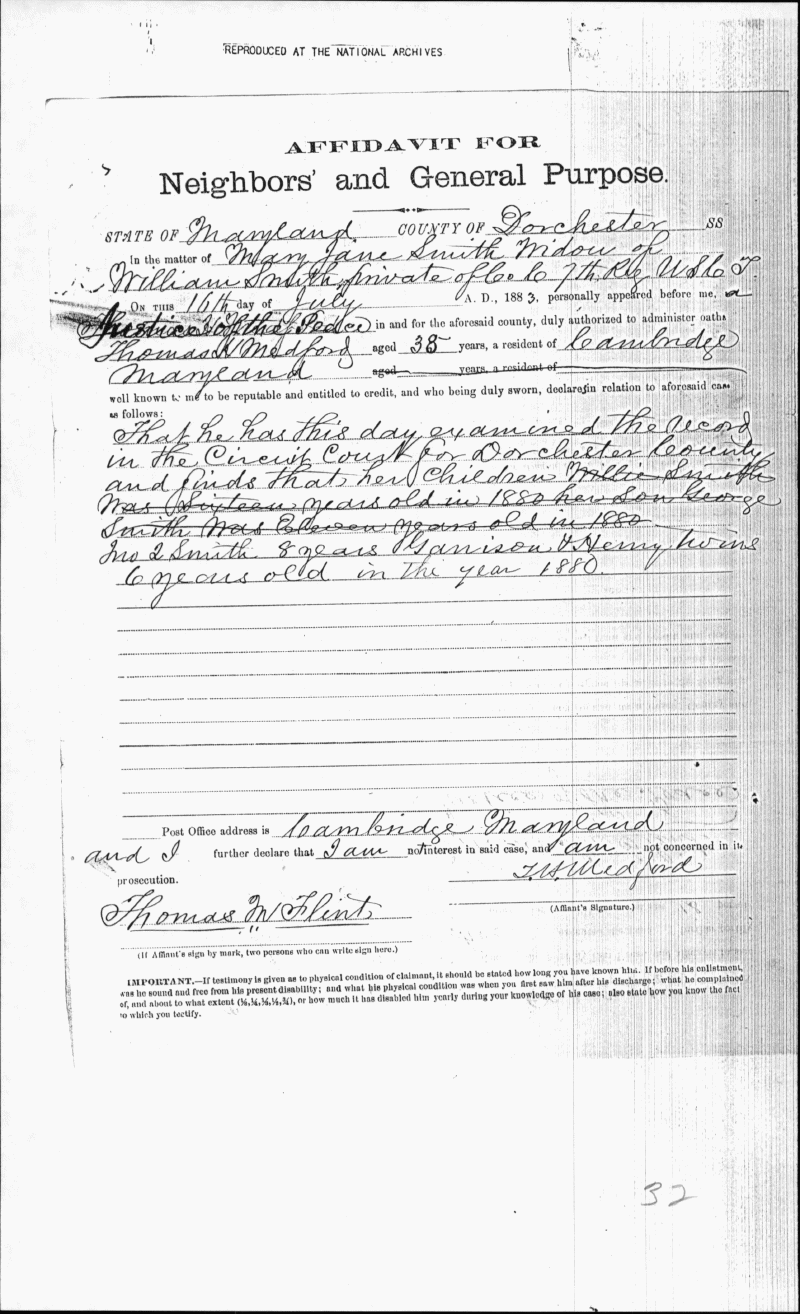 REPRODUCED AT THE NATIONAL ARCHIVES
AFFIDAVIT FOR
Neighbors' and General Purpose.
STATE OF Maryland COUNTY OF Dorchester SS
In the matter of Mary Jane Smith Widow of
William Smith private of Co C 7th Reg U S C T.
ON THIS 16th day of July A. D., 1883. personally appeared before me, a
Justice of the Peace in and for the aforesaid county, duly authorized to administer oaths
Thomas H Medford aged 35 years, a resident of Cambridge
Maryland aged years, a resident of
well known to me to be reputable and entitled to credit, and who being duly sworn, declares in relation to aforesaid case
as follows:
That he has this day examined the record
in the Circuit Court for Dorchester County
and finds that her Children Willie Smith
Was Sixteen years old in 1880 her Son George
Smith Was Eleven years old in 1880
Jno Smith 8 years Garrison & Henry twins
6 years old in the year 1880.
Post Office address is Cambridge Maryland
and I further declare that I am no interest in said case, and am not concerned in it
prosecution.
T. H. Medford
Thomas W Flint
(Affiant's Signature.)
(If Affiant's sign by mark, two persons who can write sign here.)
IMPORTANT.—If testimony is given as to physical condition of claimant, it should be stated how long you have known him. If before his enlistment,
was he sound and free from his present disability; and what his physical condition was when you first saw him after his discharge; what he complained
of, and about to what extent , or how much it has disabled him yearly during your knowledge of his case; also state how you know the fact
to which you testify.
32